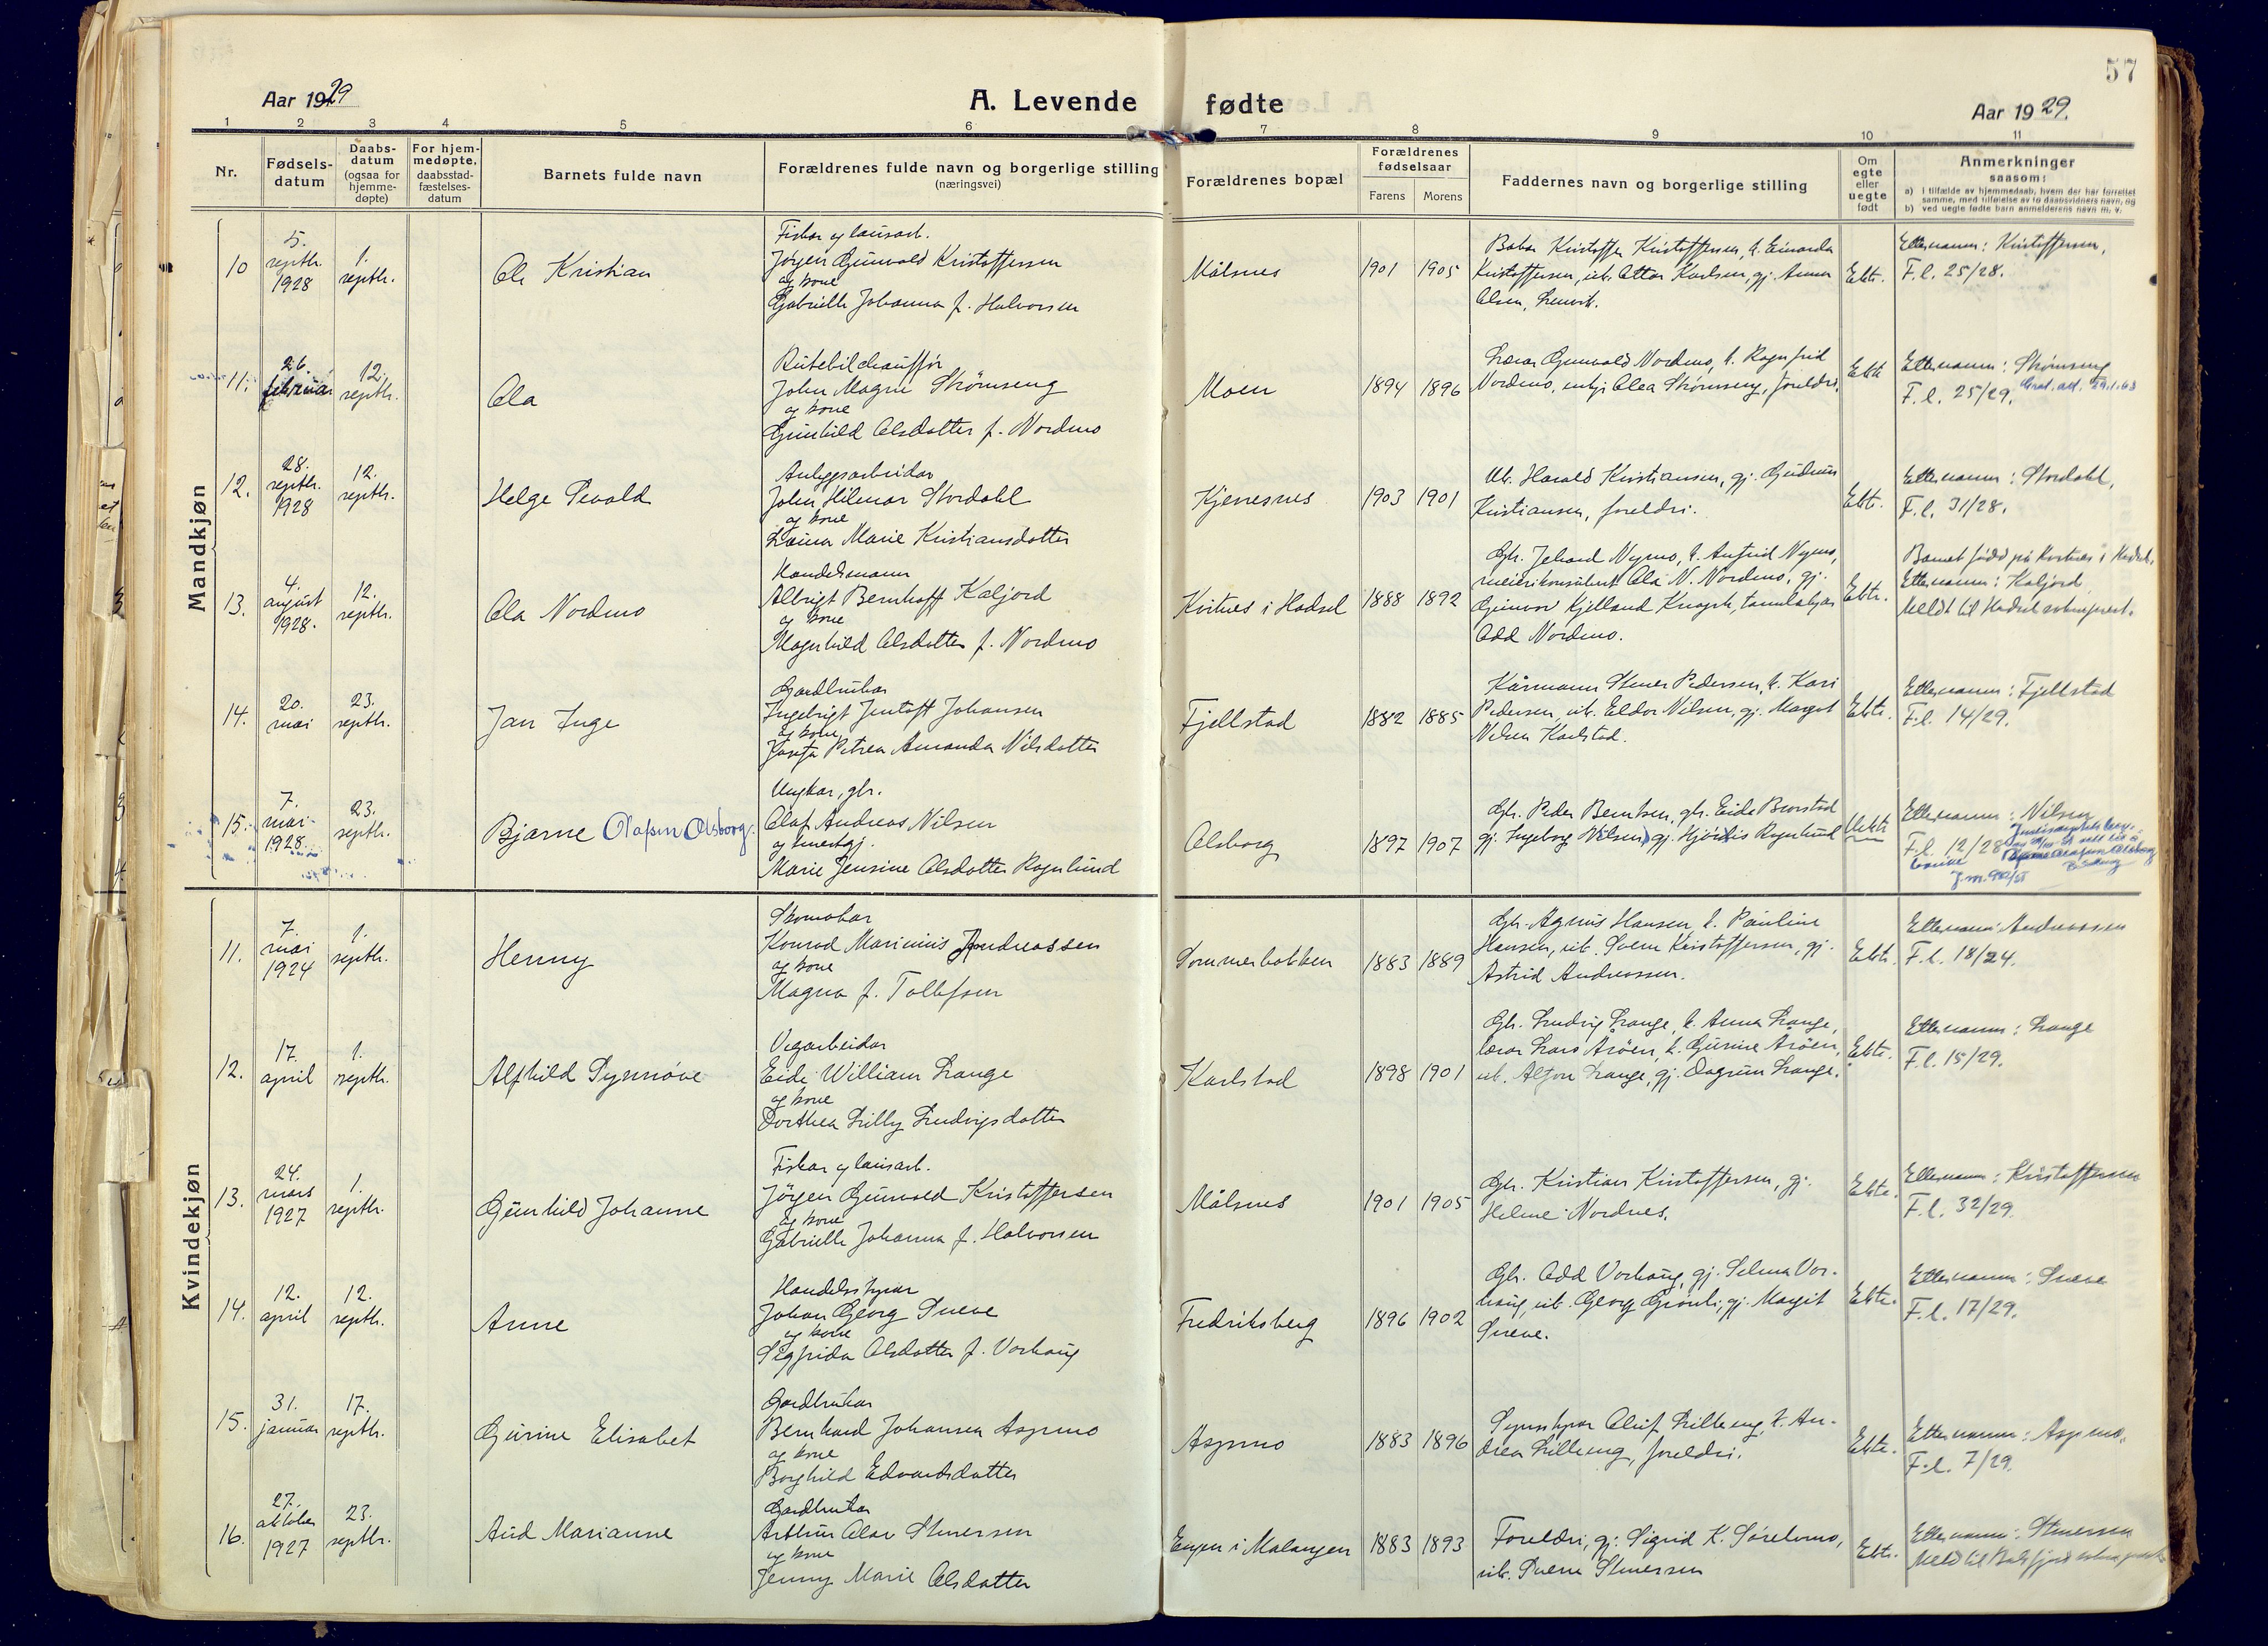 57
Aar 1929
A. Levende fødte
Aar 1929.
1 2 3 4 5 6 7 8 9 10 11
Nr.
Fødsels-
datum
Daabs-
datum
(ogsaa for
hjemme-
døpte)
For hjem-
medøpte,
daabsstad-
fæstelses-
datum
Barnets fulde navn
Forældrenes fulde navn og borgerlige stilling
(næringsvei)
Forældrenes bopæl
Forældrenes
fødselsaar
Farens Morens
Faddernes navn og borgerlige stilling
Om
egte
eller
uegte
født
Anmerkninger
saasom:
a) i tilfælde av hjemmedaab, hvem der har forrettet
samme, med tilføielse av to daabsvidners navn, og
b) ved uegte fødte barn anmelderens navn m. v.
Mandkjøn
10
5.
septbr.
1928
1.
septbr.
Ole Kristian
Fiskar og lausarb.
Jørgen Gunvald Kristoffersen
og kone
Gabrielle Johanna f. Halvorsen
Målsnes
1901 1905
Kristoffer Kristoffersen, k. Einarda
Kristoffersen, ub. Ottar Karlsen, gj. Anna
Olsen, Lenvik.
Ekte.
Etternamn: Kristoffersen,
F.l. 25/28.
11.
26.
februar
12.
septbr.
Ola
Rutebilchauffør
John Magne Strømseng
og kone
Gunhild Olsdatter f. Nordmo
Moen
1894 1896
Lærar Gunvald Nordmo, k. Ragnfrid
Nordmo, enkje Olea Strømseng, foreldre.
Ekte
Etternamn: Strømseng
F.l. 25/29.
12.
28.
septbr.
1928
12.
septbr.
Helge Sevald
Anleggsarbeidar
John Hilmar Stordahl
og kone
Laura Marie Kristiansdatter
Kjenesnes
1903 1901
Ub. Harald Kristiansen, gj. Gudrun
Kristiansen, foreldre.
Ekte.
Etternamn: Stordahl,
F.l. 31/28.
13.
4.
august
1928.
12.
septbr.
Ola Nordmo
Handelsmann
Albrigt Bernhoff Kaljord
og kone
Magnhild Olsdatter f. Nordmo
i Hadsel
1888 1892
Gbr. Nymo, k. Anfrid Nymo,
meierikonsulent Ola N. Nordmo, gj.
Gunvor Kjelland
Odd Nordmo.
Ekte.
Barnet født på i Hadsel,
Etternamn: Kaljord
Meldt til Hadsel sokneprest.
14.
20.
mai
23.
septbr.
Jan Inge
Gardbrukar
Ingebrigt Jentoft Johansen
og kone
Petrea Amanda Nilsdatter
Fjellstad
1882 1885
Kårmann Stener Pedersen, k. Kari
Pedersen, ub. Eldor Nilsen, gj. Margot
Nilsen Karlstad.
Ekte.
Etternamn: Fjellstad
F.l. 14/29.
15.
7.
mai
1928.
23.
septbr.
Bjarne Olafsen Olsborg.
Ungkar, gbr.
Olaf Andreas Nilsen
og
Marie Jensine Olsdatter Rognlund
Olsborg
1897 1907
Gbr. Peder Berntsen, gbr. Eide
gj. Ingeborg Nilsen, gj. Hjördis Rognlund
Uekte
Etternamn: Nilsen
F.l. 12/28
Kvindekjøn
11.
7.
mai
1924
1.
septbr.
Henny
Skomakar
Konrad Marinius Andreassen
og kone
Magna f. Tollefsen
Sommerbakken
1883 1889
Gbr. Agnus Hansen, k. Pauline
Hansen, ub. Sverre Kristoffersen, gj.
Astrid Andreassen.
Ekte.
Etternamn: Andreassen
F.l. 18/24.
12.
17.
april
1.
septbr.
Alfhild Synnøve
Vegarbeidar
Eide William Lange
og kone
Dorthea Lilly Ludvigsdatter
Karlstad
1898 1901
Gbr. Ludvig Lange, k. Anna Lange,
lærar Lars Arøen, k. Gurine Arøen,
ub. Alfon Lange, gj. Dagrun Lange.
Ekte.
Etternamn: Lange
F.l. 15/29.
13.
24.
mars
1927
1.
septbr.
Gunhild Johanne
Fiskar og lausarb.
Jørgen Gunvald Kristoffersen
og kone
Gabrielle Johanna f. Halvorsen
Målsnes
1901 1905
Gbr. Kristian Kristoffersen, gj.
Helene Nordnes.
Ekte.
Etternamn: Kristoffersen
F.l. 32/29.
14.
12.
april
12.
septbr.
Anne
Handelsstyrar
Johan Georg Sneve
og kone
Sigfrida Olsdatter f. Vorhaug
Fredriksberg
1896 1902
Gbr. Odd Vorhaug, gj. Selma Vor-
haug, ub. Georg Grønli, gj. Margit
Sneve.
Ekte.
Etternamn: Sneve
F.l. 17/29.
15.
31.
januar
17.
septbr.
Gurine Elisabet
Gardbrukar
Bernhard Johansen Aspmo
og kone
Borghild Edvardsdatter
Aspmo
1883 1896
Oluf Lilleeng, k. An-
drea Lilleeng, foreldre.
Ekte.
Etternamn: Aspmo.
F.l. 7/29.
16.
27.
oktober
1927
23.
septbr.
Aud Marianne
Gardbrukar
Arthur Olav Stenersen
og kone
Jenny Marie Olsdatter
Engen i Malangen
1883 1893
Foreldre, gj. Sigrid K. Sørelvmo,
ub. Sverre Stenersen
Ekte.
Etternamn: Stenersen
Meld til Balsfjord sokneprest